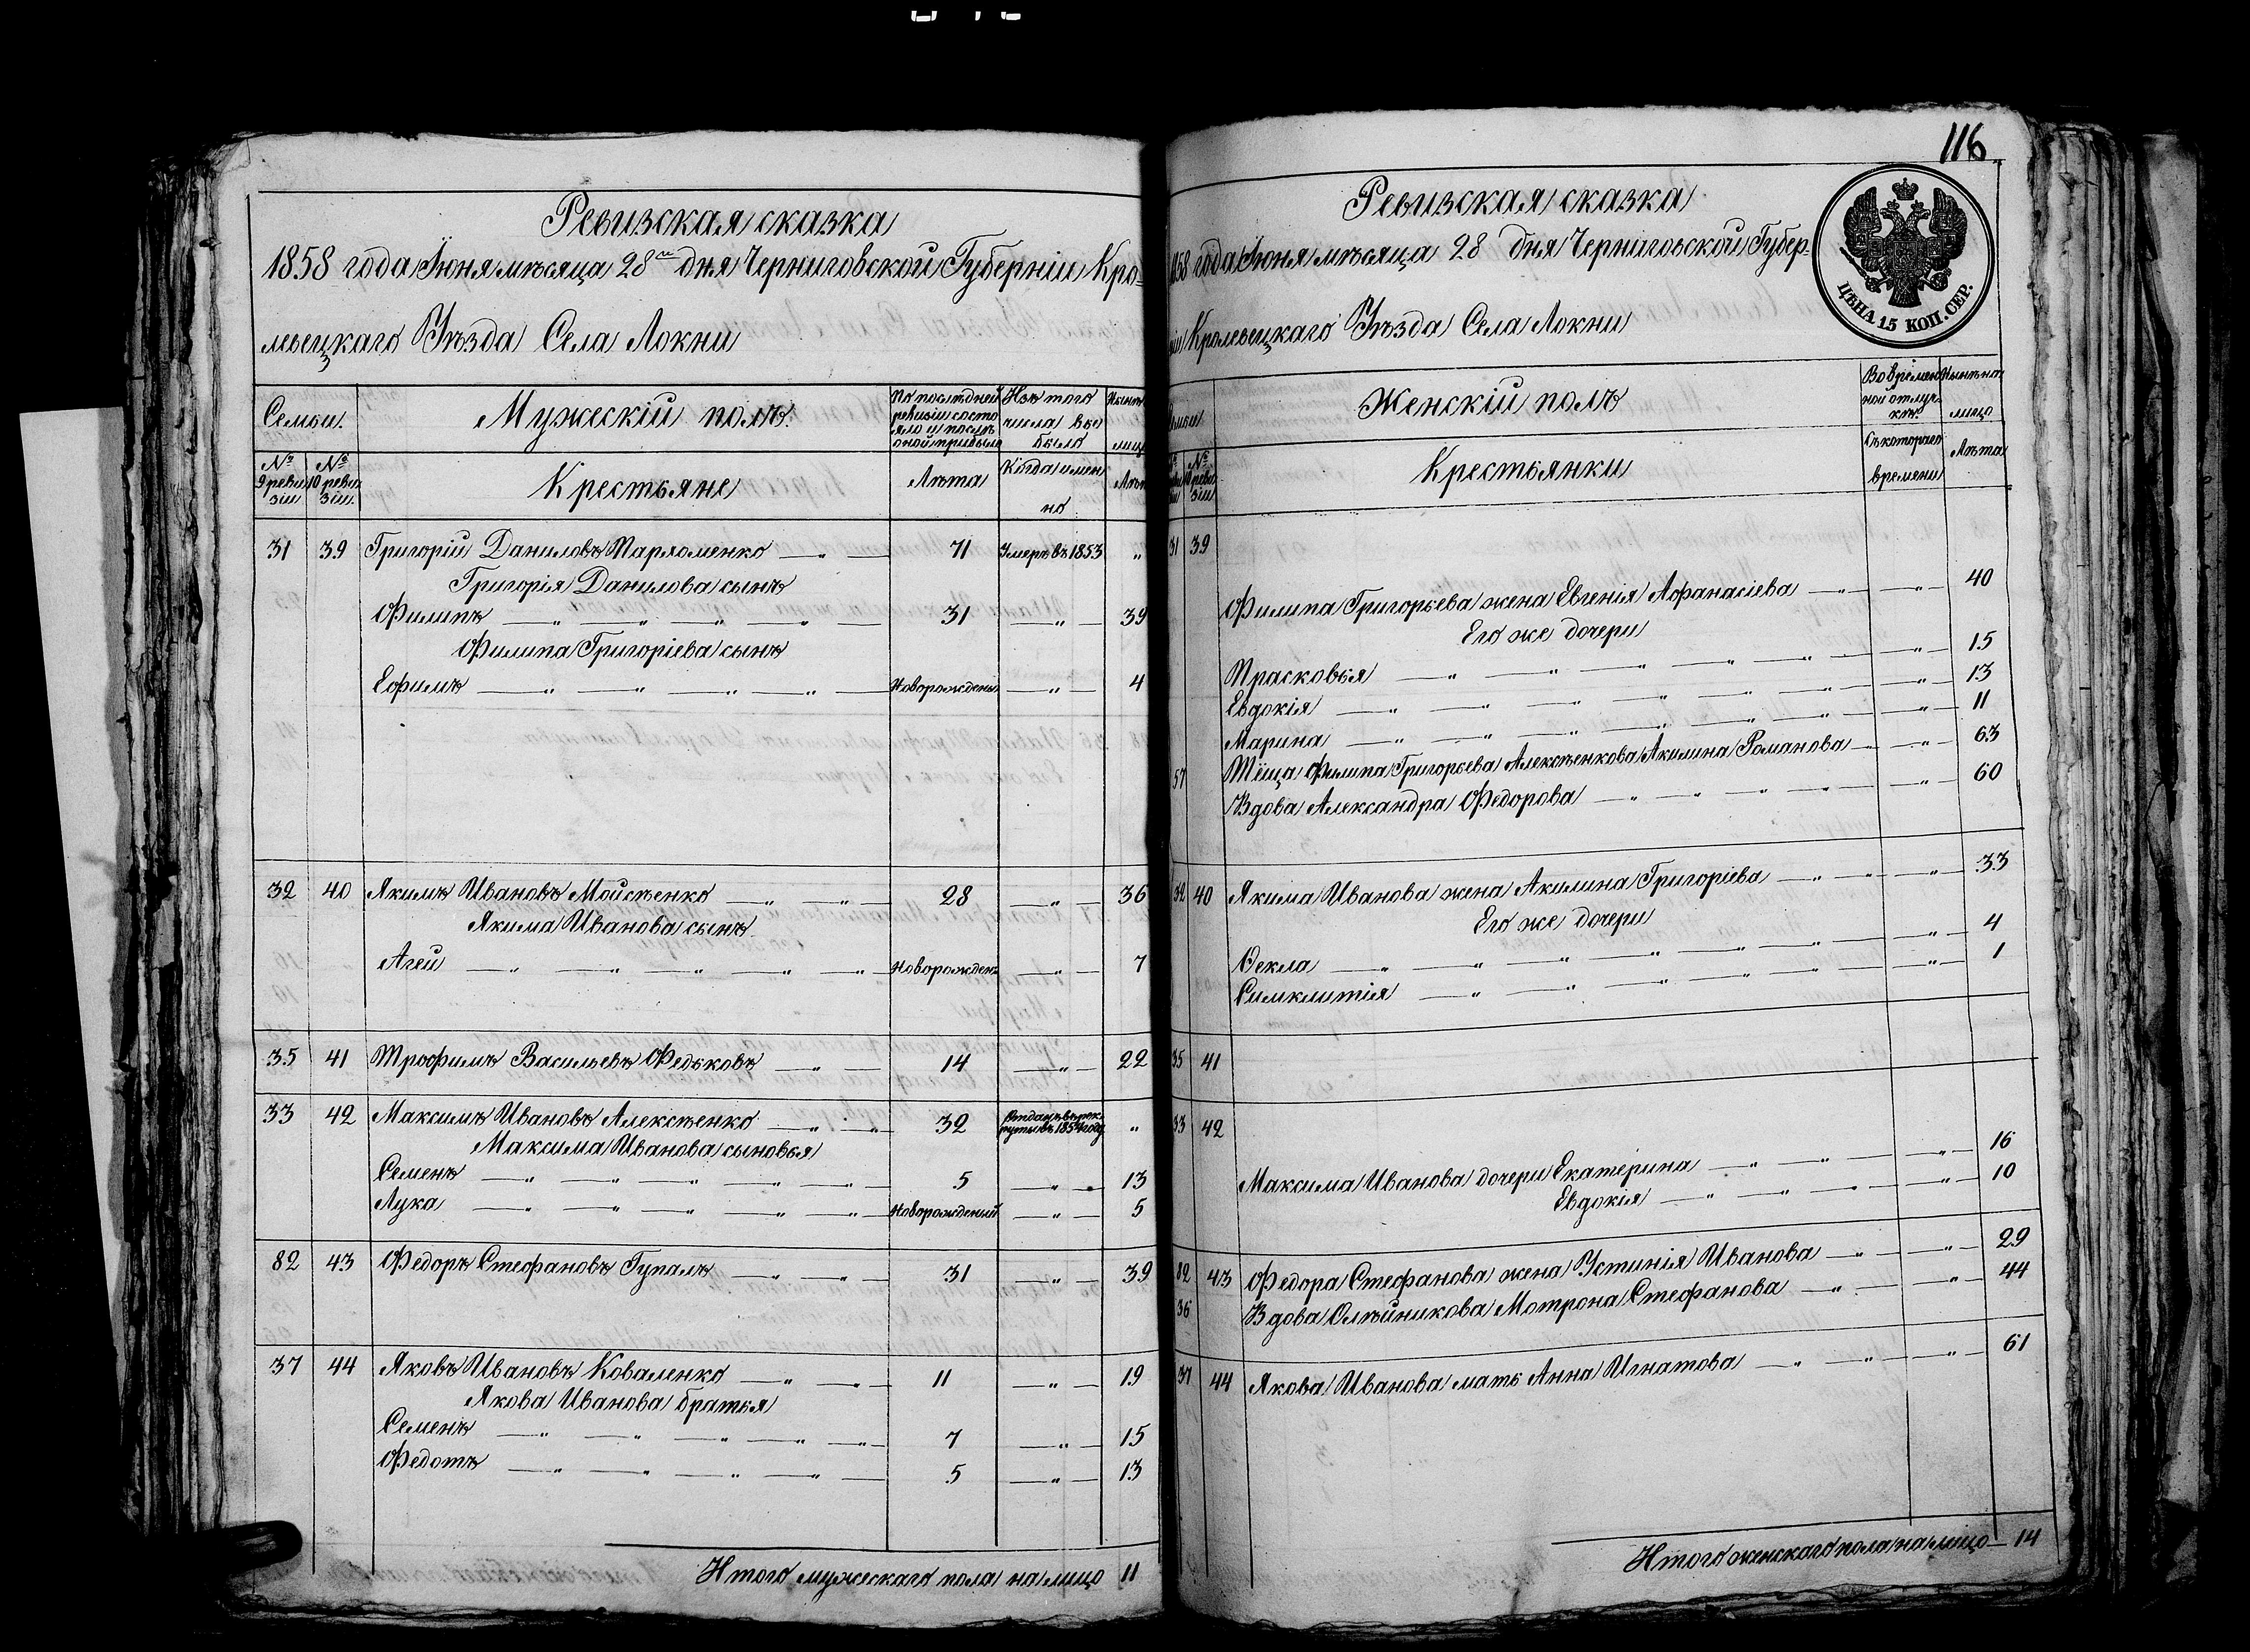 Ревизская сказка
1858 года Іюня мѣсяца 28го дня Черниговской Губерніи Кро-
левецкаго Уѣзда Села Локни
Семьи. Мужескій полъ. По послѣдней ревизіи состояло и послѣ оной прибыло Изъ того числа выбыло Нынѣ лицо
№ 9 ревизіи № 10 ревизіи. Крестьяне Лѣта Когда именно Лѣта
31 39 Григорій Даниловъ Пархоменко 71 Умеръ въ 1853 "
Григорія Данилова сынъ
Филипъ 31 " 39
Филипа Григоріева сынъ
Ефимъ Новорожденъ " 4
32 40 Якимъ Ивановъ Мойсѣенко 28 " 36
Якима Иванова сынъ
Агей новорожден " 7
35 41 Трофимъ Васильевъ Федьковъ 14 " 22
33 42 Максимъ Ивановъ Алексѣенко 32 Отданъ въ рекруты въ 1854 году "
Максима Иванова сыновья
Семенъ 5 " 13
Лука новорожденый " 5
82 43 Федоръ Стефановъ Гупалъ 31 " 39
37 44 Яковъ Ивановъ Коваленко 11 " 19
Якова Иванова братья
Семенъ 7 " 15
Федотъ 5 " 13
Итого мужескаго пола на лицо 11
116
Ревизская сказка
1858 года Іюня мѣсяца 28 дня Черниговской Губер-
ніи Кролевецкаго Уѣзда Села Локни
ЦѢНА 15 КОП. СЕР.
Семьи Женскій полъ Во временной отлучкѣ. Нынѣ на лицо
№ 10 ревизіи Крестьянки Съ котораго времени Лѣта
31 39
Филипа Григорьева жена Евгенія Афанасіева " 40
Его же дочери
Прасковья " 15
Евдокія " 13
Марина " 11
57 Тёща Филипа Григорьева Алексѣенкова Акилина Романова " 63
Вдова Александра Федорова " 60
32 40 Якима Иванова жена Акилина Григоріева " 33
Его же дочери
Фекла " 4
Симклитія " 1
35 41
33 42
Максима Иванова дочери Екатерина " 16
Евдокія " 10
82 43 Федора Стефанова жена Устинія Иванова " 29
36 Вдова Олѣйникова Мотрона Стефанова " 44
37 44 Якова Иванова мать Анна Игнатова " 61
Итого женскаго пола на лицо 14